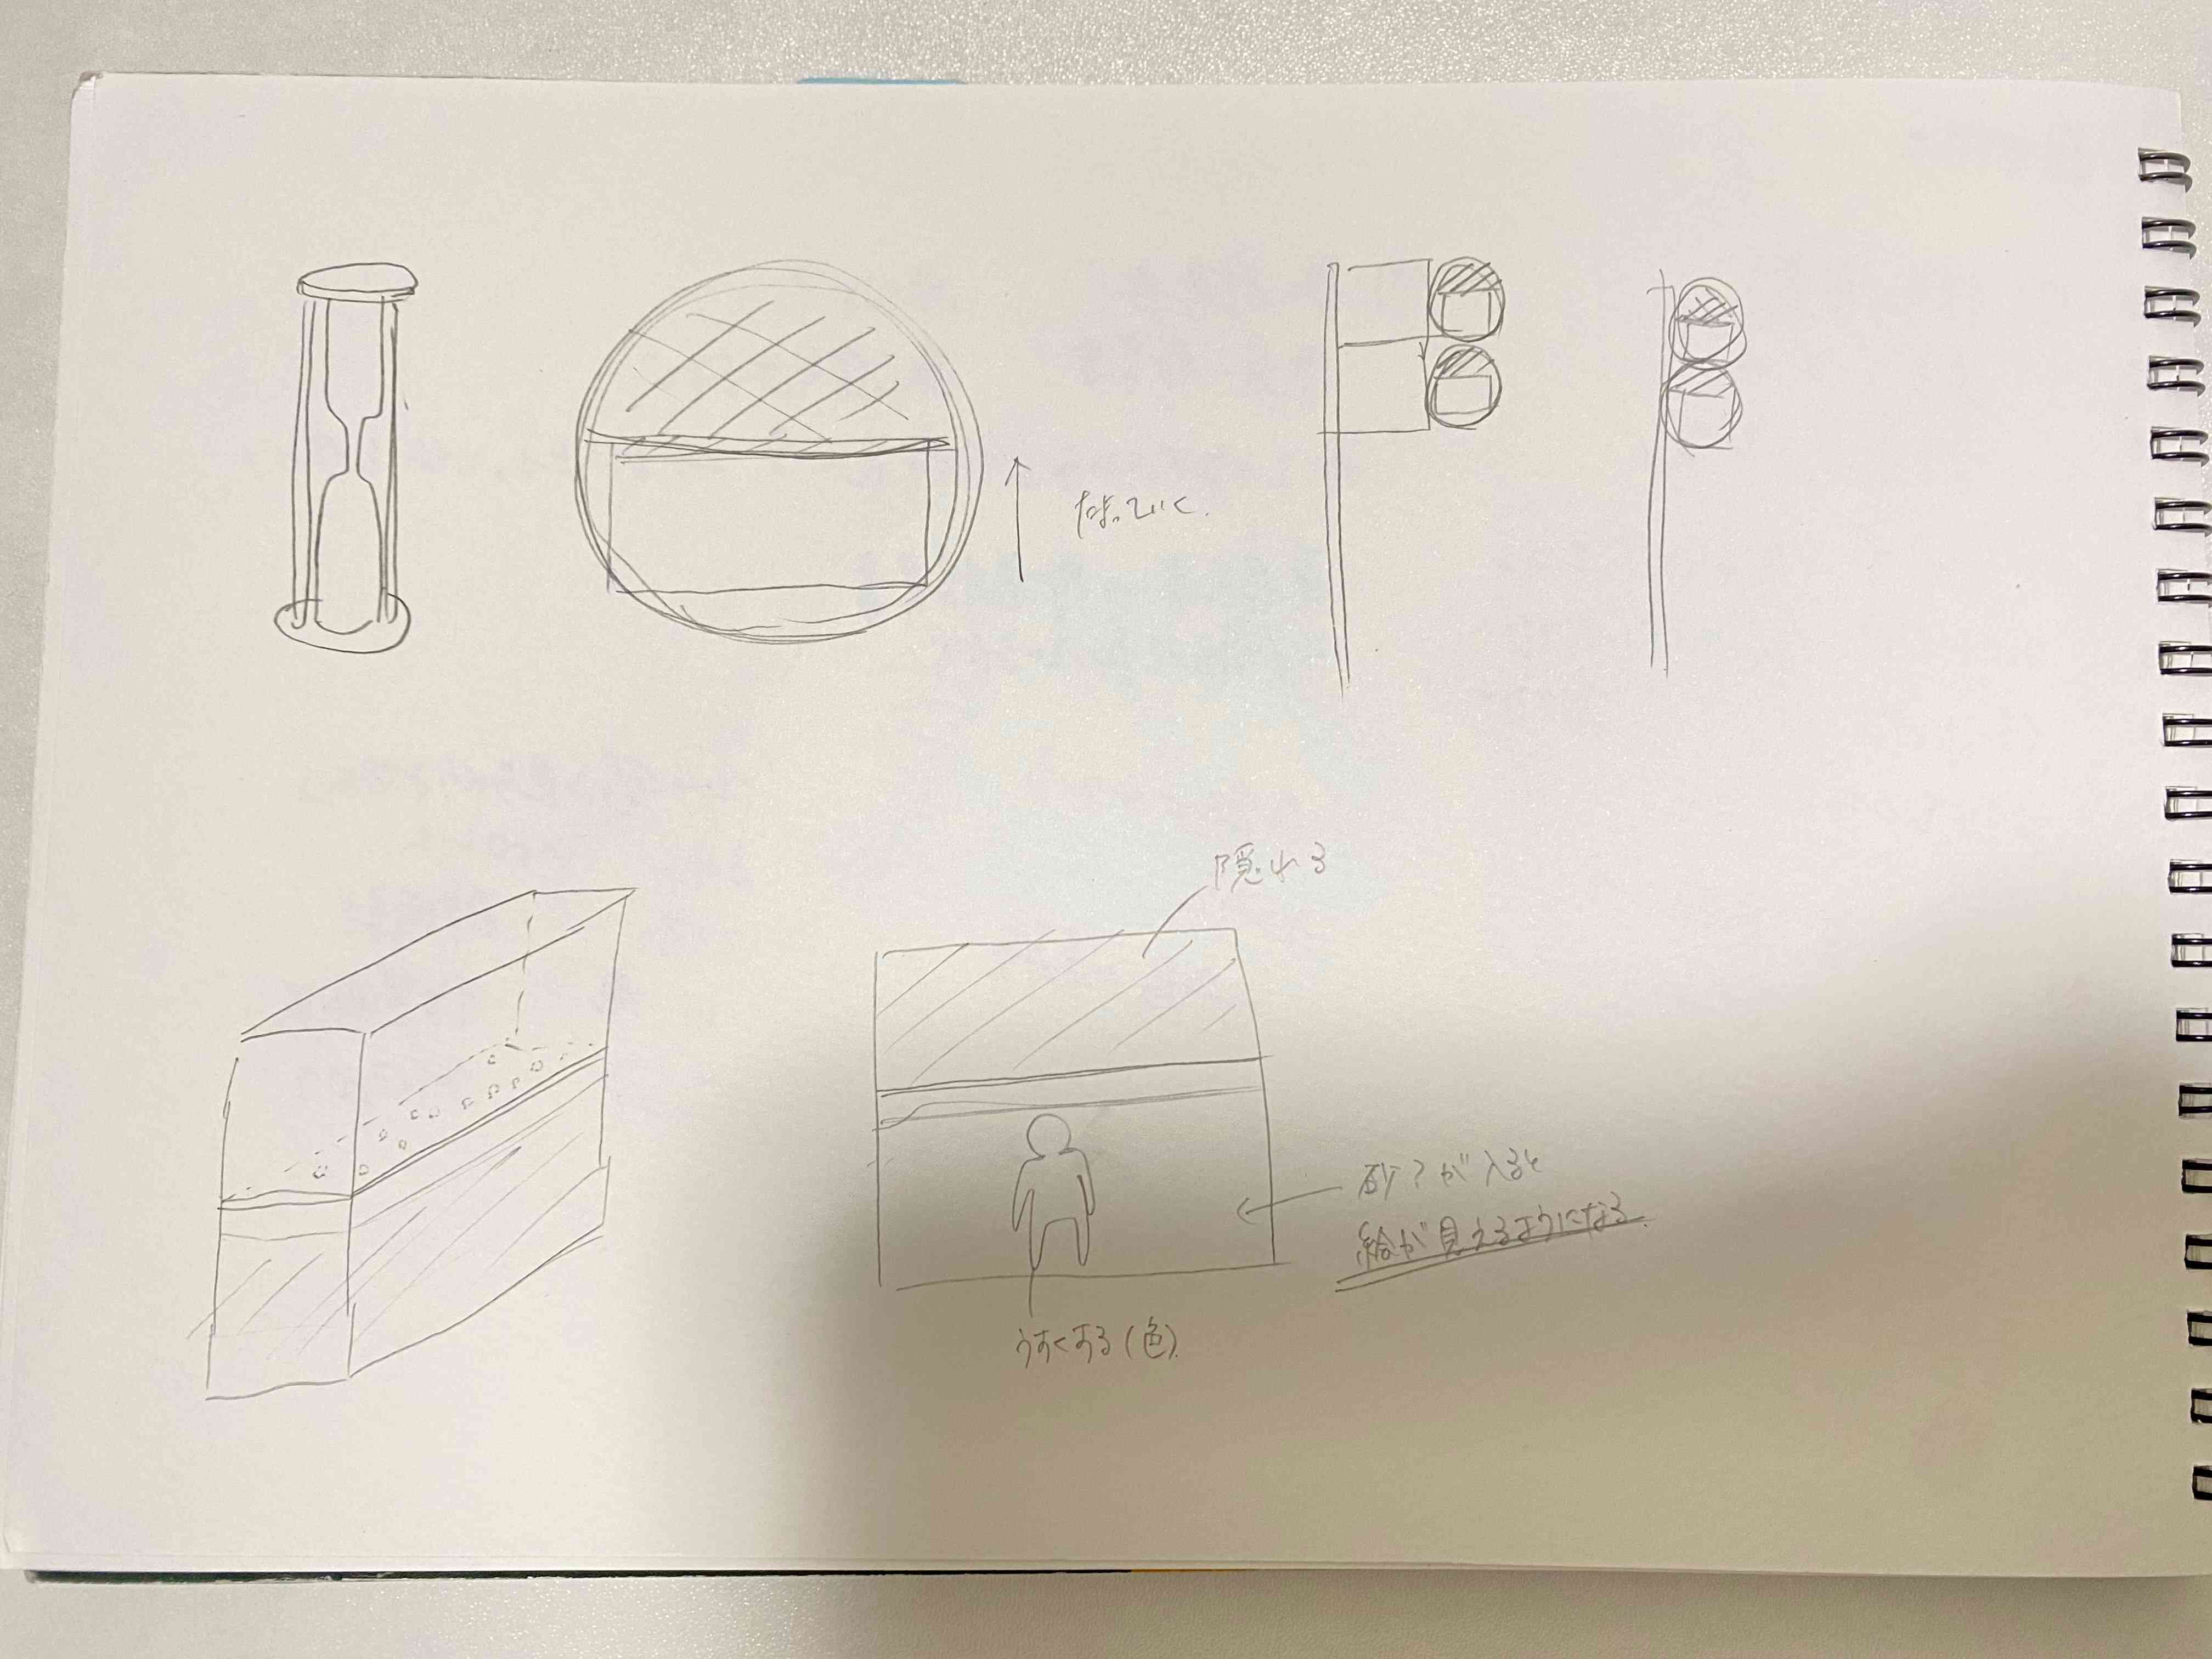 たまっていく.
隠れる
砂?が入ると
絵が見えるようになる.
うすくする(色).